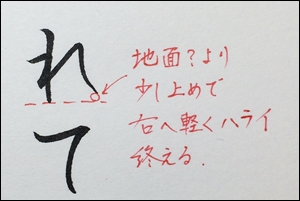 れ
て
地面?より
少し上めで
右へ軽くハライ
終える.